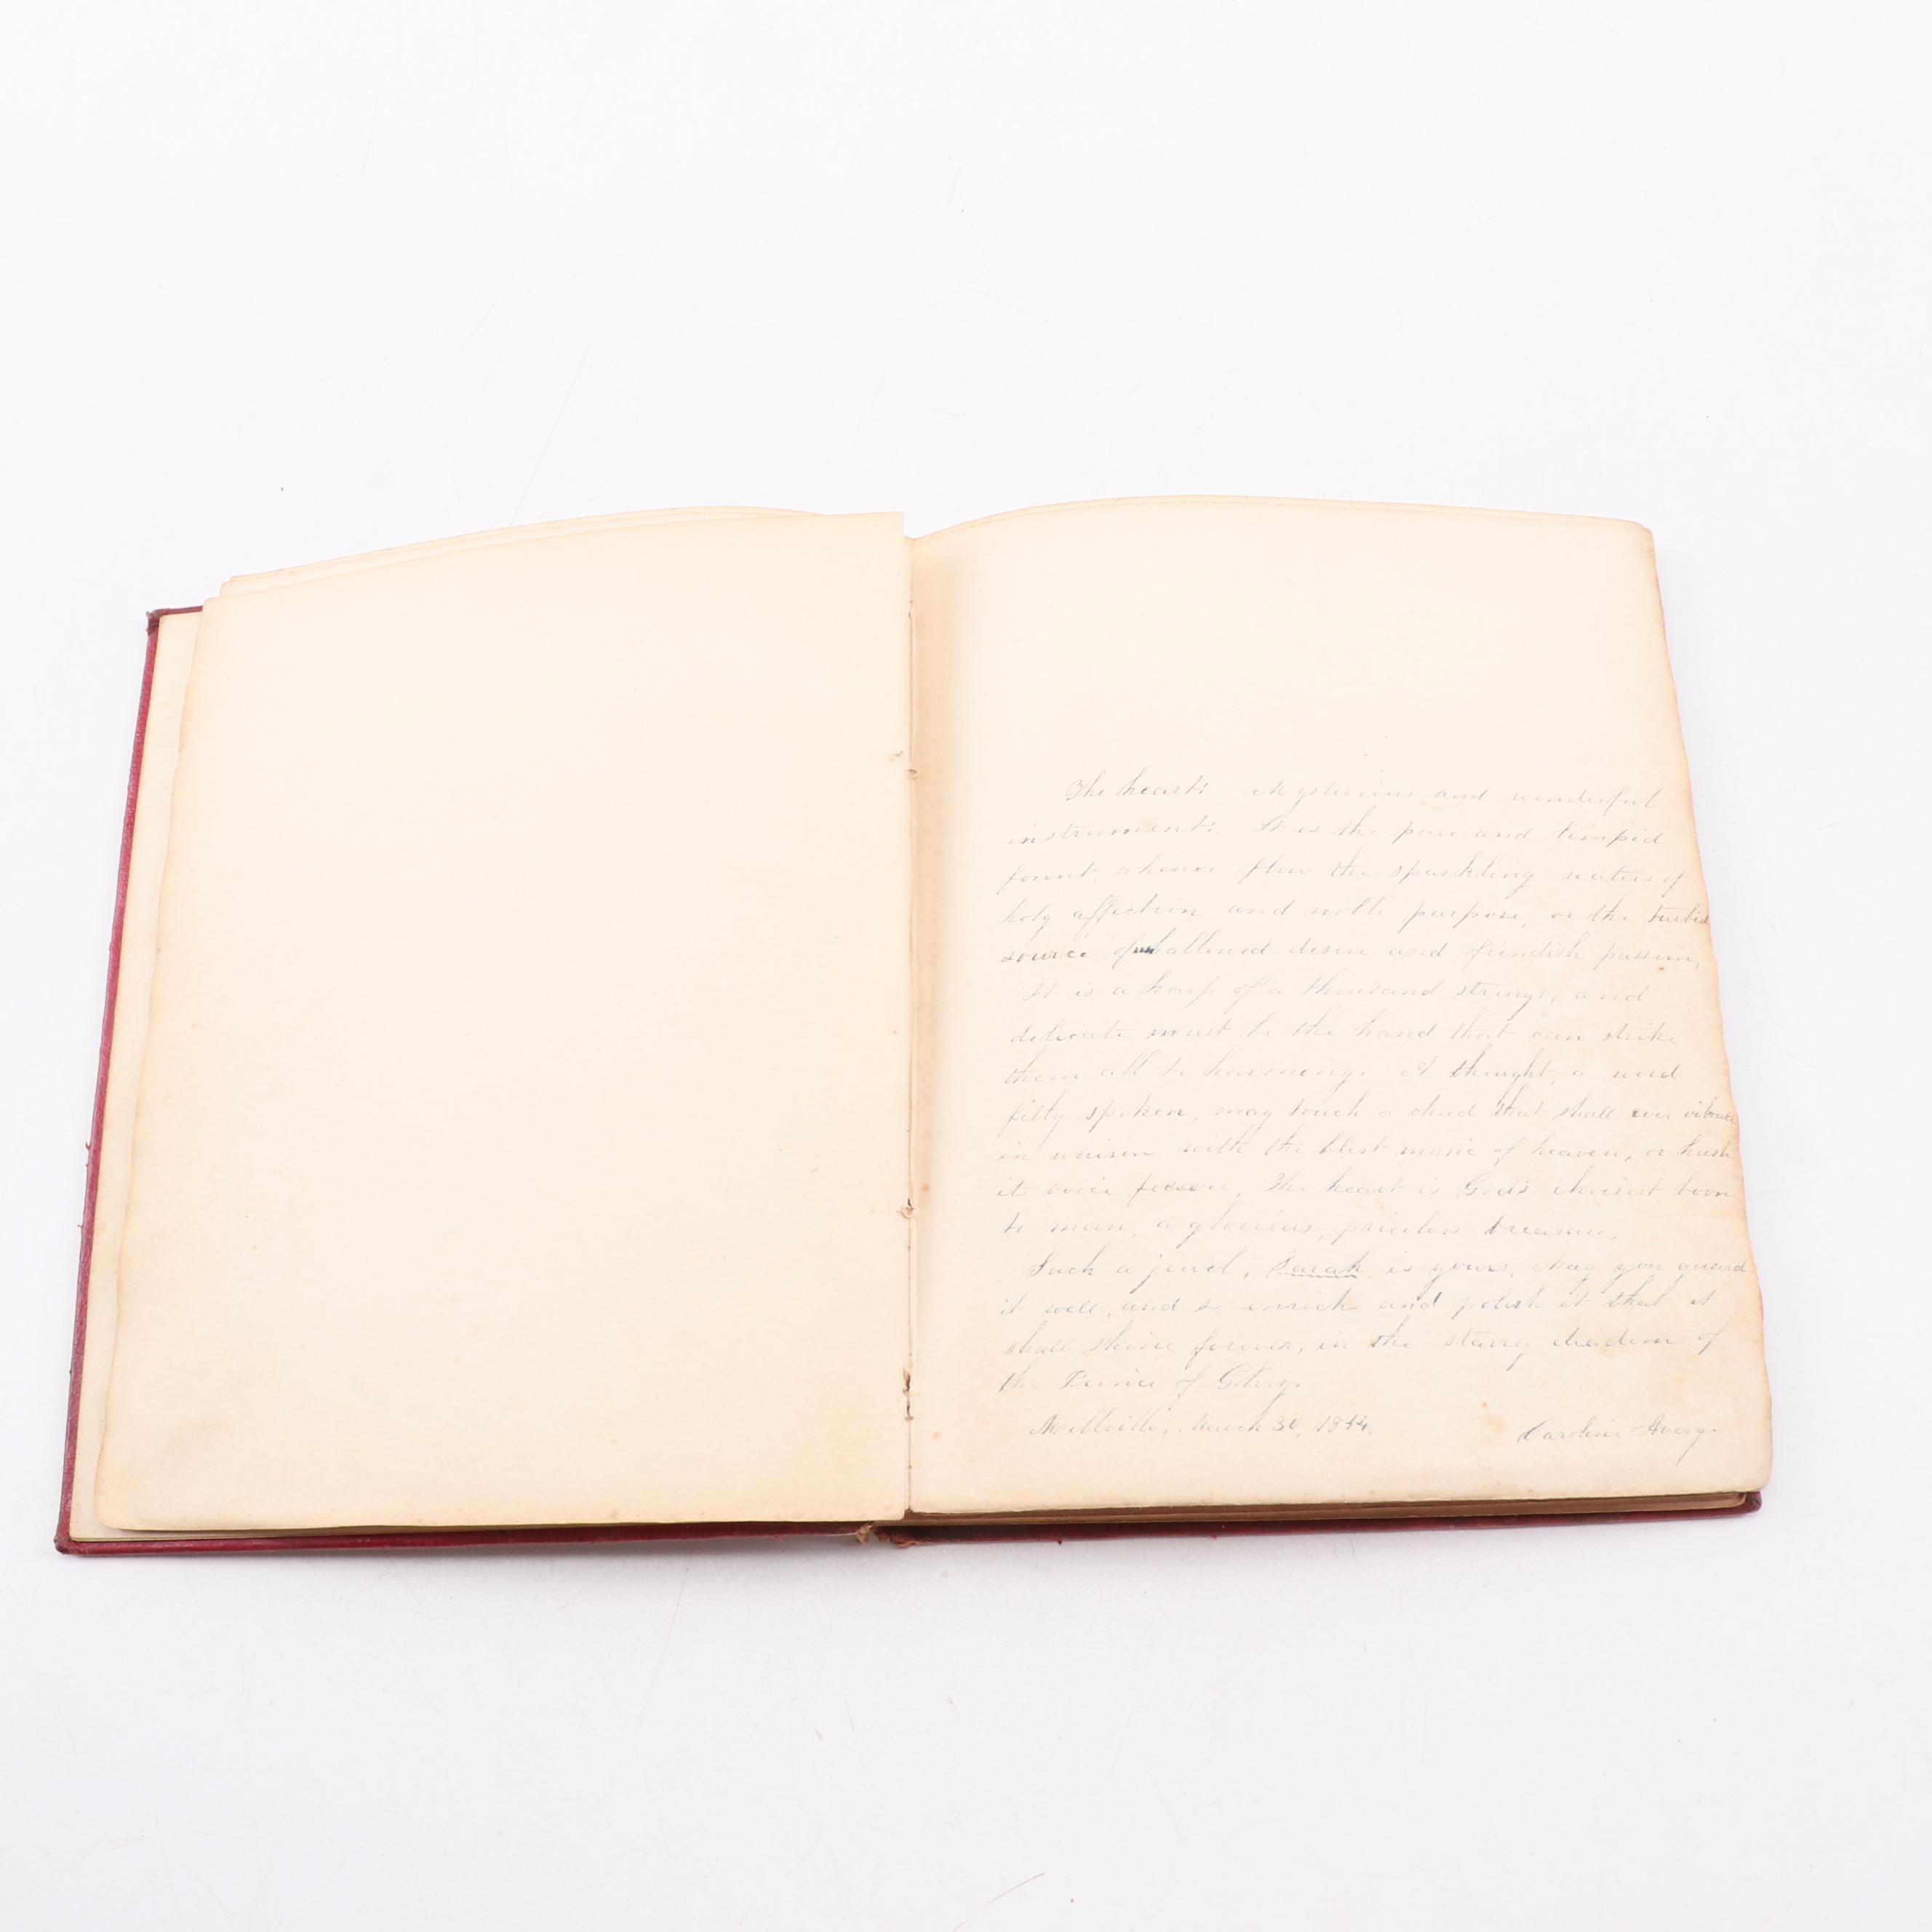 The heart! Mysterious and wonderful
instrument! It is the pure and limpid
fount, whence flow the sparkling waters of
holy affection and noble purpose, or the turbid
source of unhallowed desire and fiendish passion,
It is a harp of a thousand strings, and
delicate must be the hand that can strike
them all to harmony. A thought, a word
fitly spoken, may touch a chord that shall ever vibrate
in unison with the blest music of heaven, or hush
its voice forever. The heart is God's choisest boon
to man, a glorious, priceless treasure.
Such a jewel, Sarah is yours. May you guard
it well, and so enrich and polish it that it
shall shine forever, in the starry diadem of
the Prince of Glory.
Millville, March 30, 1844.
Caroline Avery.